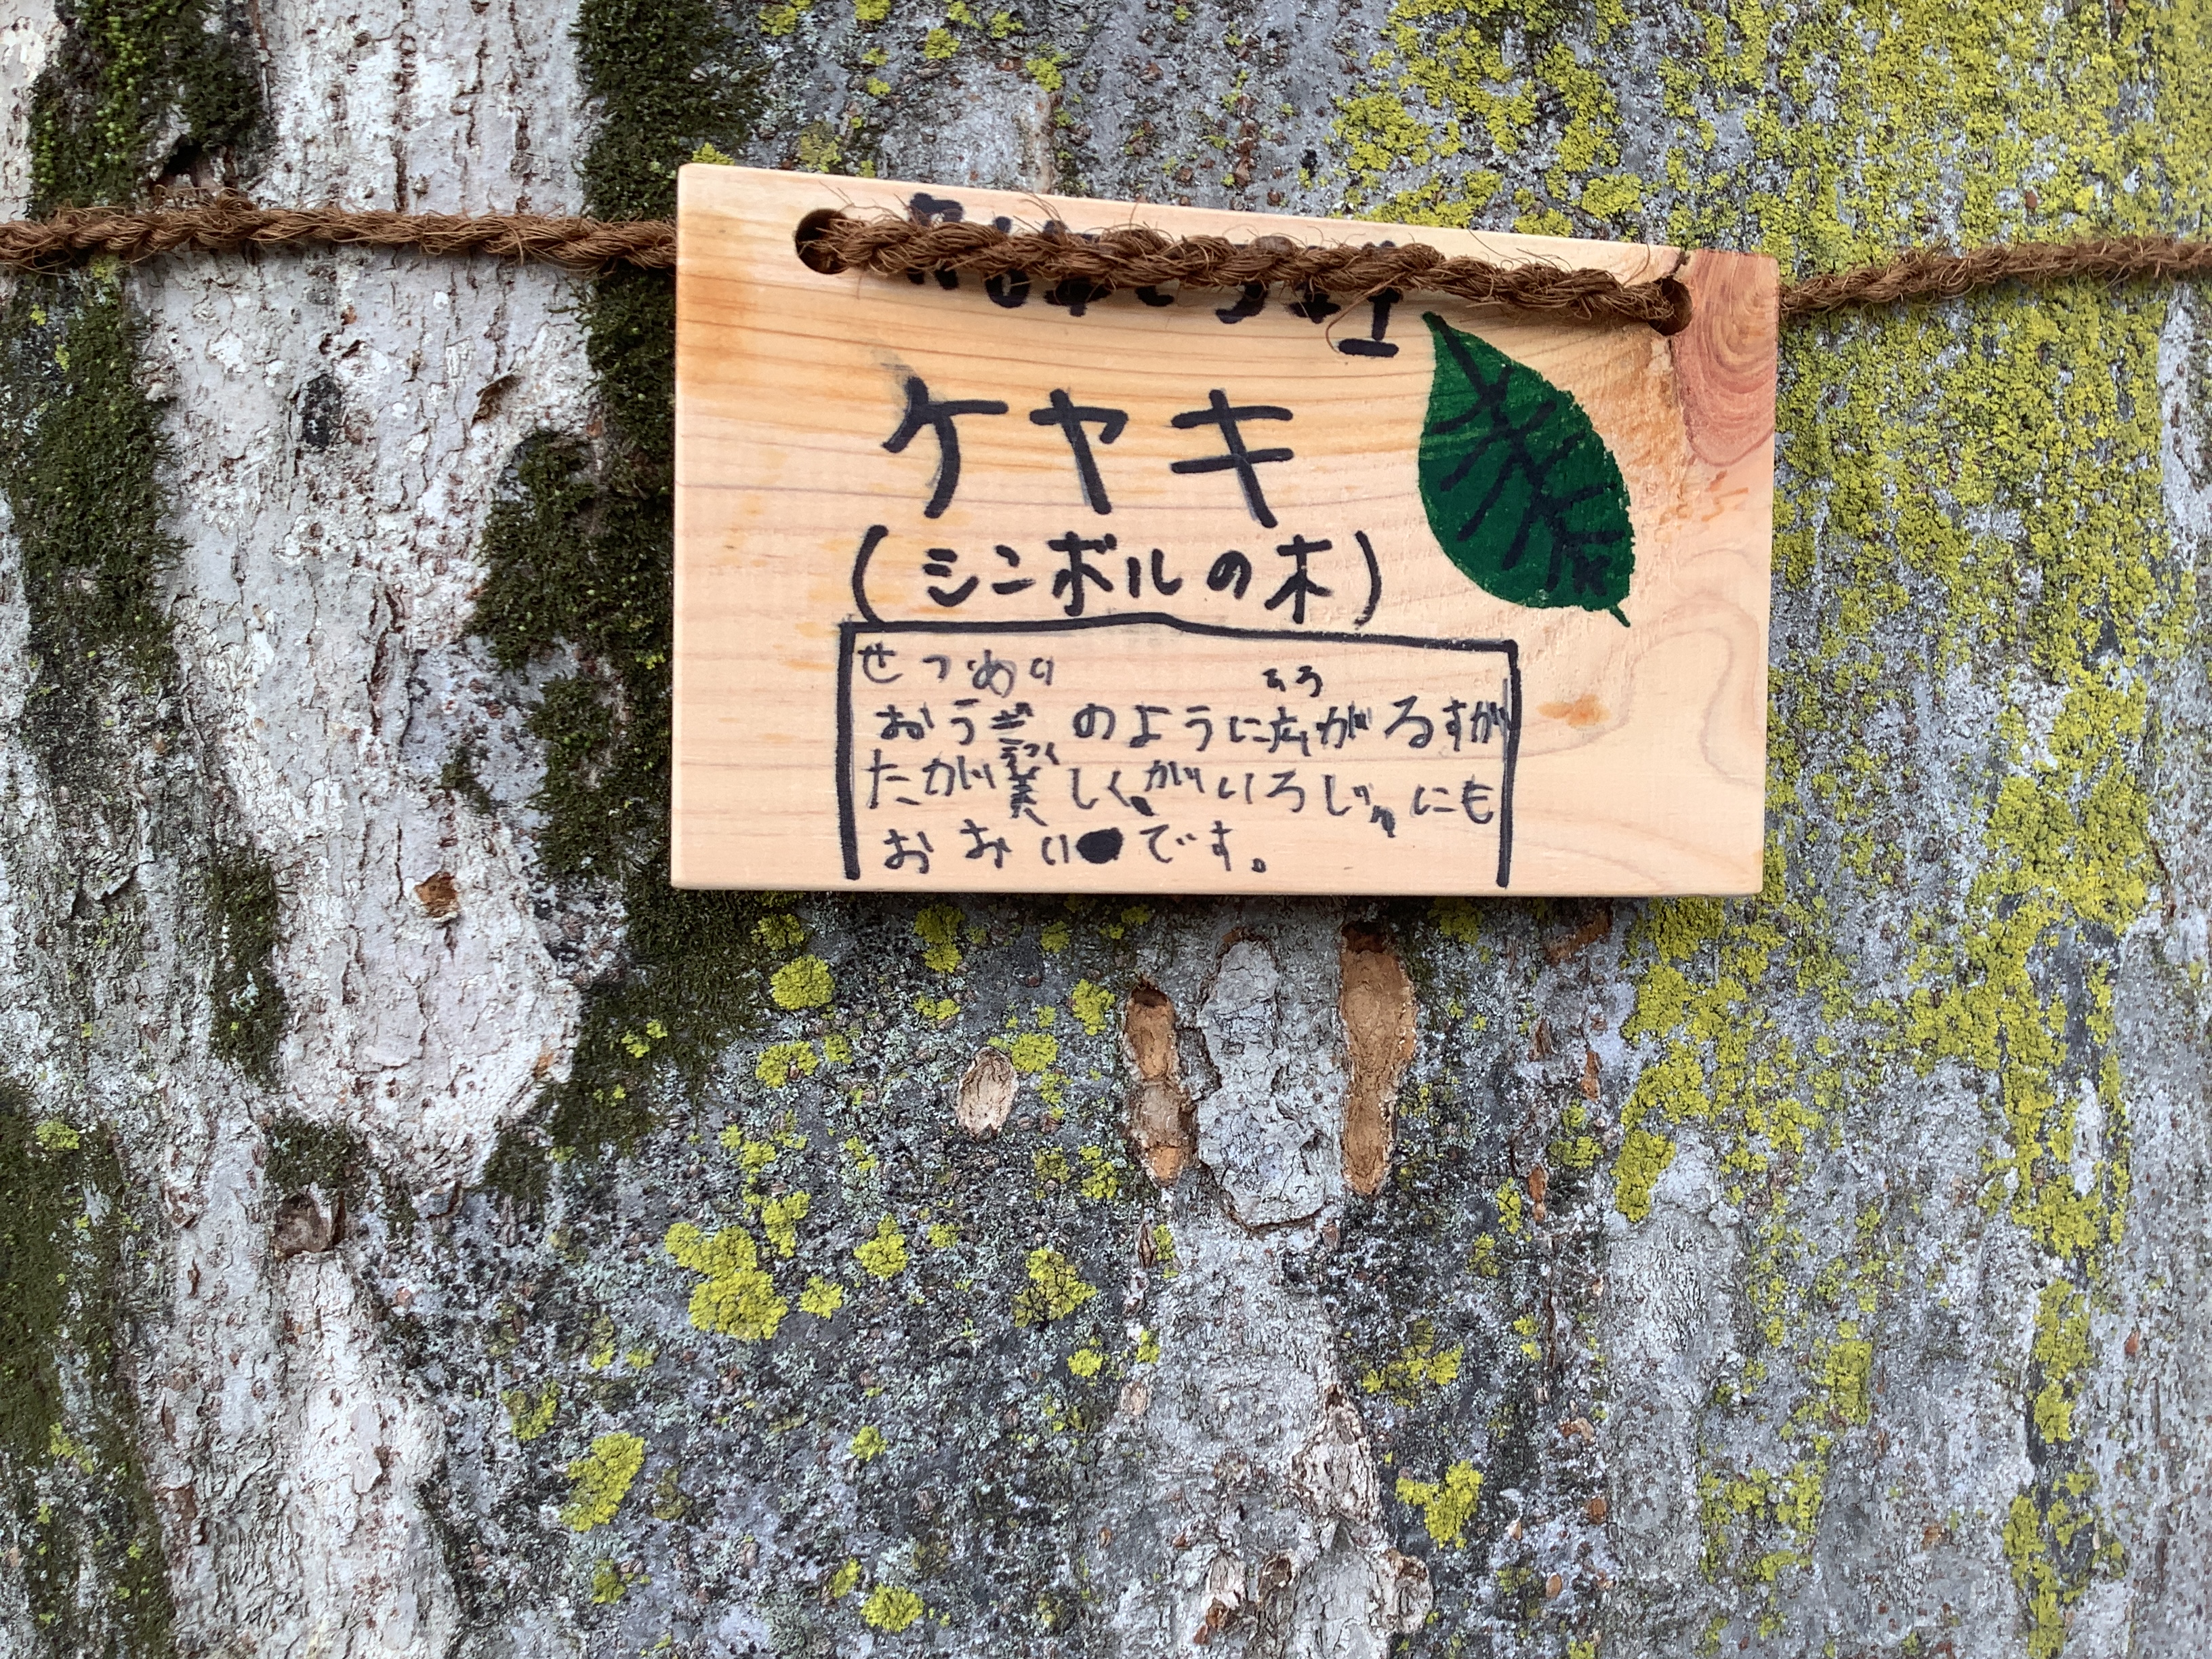 ケヤキ
(シンボルの木)
せつめい
おうぎのように広がるすが
たが美しくがいろじゅにも
おおいです。